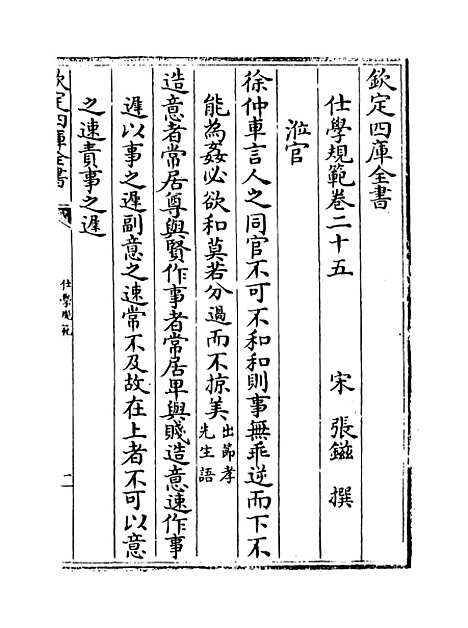 欽定四庫全書
仕學規範卷二十五
宋 張鎡 撰
涖官
徐仲車言人之同官不可不和和則事無乖逆而下不
能為姦必欲和莫若分過而不掠美出節孝
先生語
造意者常居尊與賢作事者常居卑與賤造意速作事
遲以事之遲副意之速常不及故在上者不可以意
之速責事之遲
欽定四庫全書
仕學規範
二